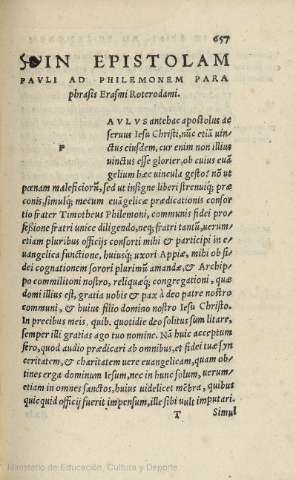 657
IN EPISTOLAM
PAVLI AD PHILEMONEM PARA
phrasis Erasmi Roterodami.
P
AVLVS antehac apostolus ac
seruus Iesu Christi, nũc etiã uin-
ctus eiusdem, cur enim non illius
uinctus esse glorier, ob cuius euã
gelium hæc uincula gesto? nõ ut
pœnam maleficiorũ, sed ut insigne liberi strenuiq; præ
conis, simulq; mecum euãgelicæ prædicationis consor
tio frater Timotheus Philemoni, communis fidei pro-
fessione fratri unice diligendo, neq; fratri tantũ, uerum-
etiam pluribus officijs consorti mihi & participi in e-
uangelica functione, huiusq; uxori Appiæ, mihi ob fi-
dei cognationem sorori plurimũ amandæ, & Archip-
po commilitoni nostro, reliquæq; congregationi, quæ
domi illius est, gratia uobis & pax à deo patre nostro
communi, & huius filio domino nostro Iesu Christo.
In precibus meis, quib. quotidie deo solitus sum litare,
semper illi gratias ago tuo nomine. Nã huic acceptum
fero, quod audio prædicari ab omnibus, et fidei tuæ syn
ceritatem, & charitatem uere euangelicam, quam ob-
tines erga dominum Iesum, nec in hunc solum, uerum-
etiam in omnes sanctos, huius uidelicet mẽbra, quibus
quicquid officij fuerit impensum, ille sibi uult imputari.
T Simul
Ministerio de Educación, Cultura y Deporte